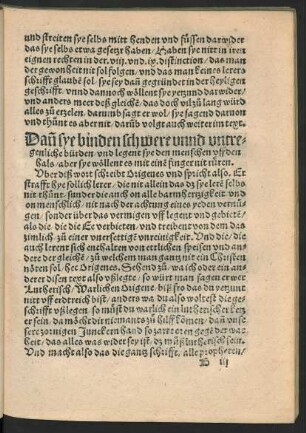 und streiten sye selbs mit henden und füssen darwider
das sye selbs etwa gesetzt haben / Haben sye nitt in iren
eignen rechten in der .viij. und .ix. distinction / das man
der gewonheit nit sol folgen / und das man keines lerers
schrifft glaube sol / sye sey dañ gegründet in der heyligen
geschrifft. vnnd dannocht wöllent sye yetzund darwider /
und anders meer deß gleiche / das doch vil zů lang würd
alles zů erzelen. darumb sagt er wol / sye sagend darvon
und thůnt es aber nit. darüb volgt auch weiter im text.
Dañ sye binden schwere vnnd vntre⸗
genliche bürden / und legent sye den menschen vff den
hals / aber sye wöllent es mit eine finger nit rüren.
Uber diß wort schreibt Origenes und spricht also. Er
strafft hye sollich lerer / die nit allein das dz sye lere selbs
nit thůnt / sunder die auch on alle barmhertzigkeit / und
on menschlich / nit nach der achtung eines yeden vermü⸗
gen / sonder über das vermügen uff legent und gebiete /
als die / die die Ee verbieten / und treibent von dem das
zimlich zů einer vnzertigt vnreinigkeit. Und die / die
auch lerent sich enthalten von etlichen speisen und an
dere der gleiche / zů welchem man gantz nit ein Christen
nöten sol. hec Origenes. Sehend zů / wa ich oder ein an⸗
derer disen text also ußlegte / so würt man sagen er wer
Lutherisch / Warlichen Origene / biß fro das du yetzunt
nitt vff erdtreich bist / anders wa du also woltest die ge⸗
schrifft ußlegen / so müst du warlich ein lutherischer ketz
er sein / da möcht dir niemants zů hilff kömen / dañ unse
re zornigen Junckern hand so zarte oren gegē der war
heit / das alles was wider sey ist / dz můß lutherisch sein.
Und macht also das die gantz schrifft / alle propheten /
D iij